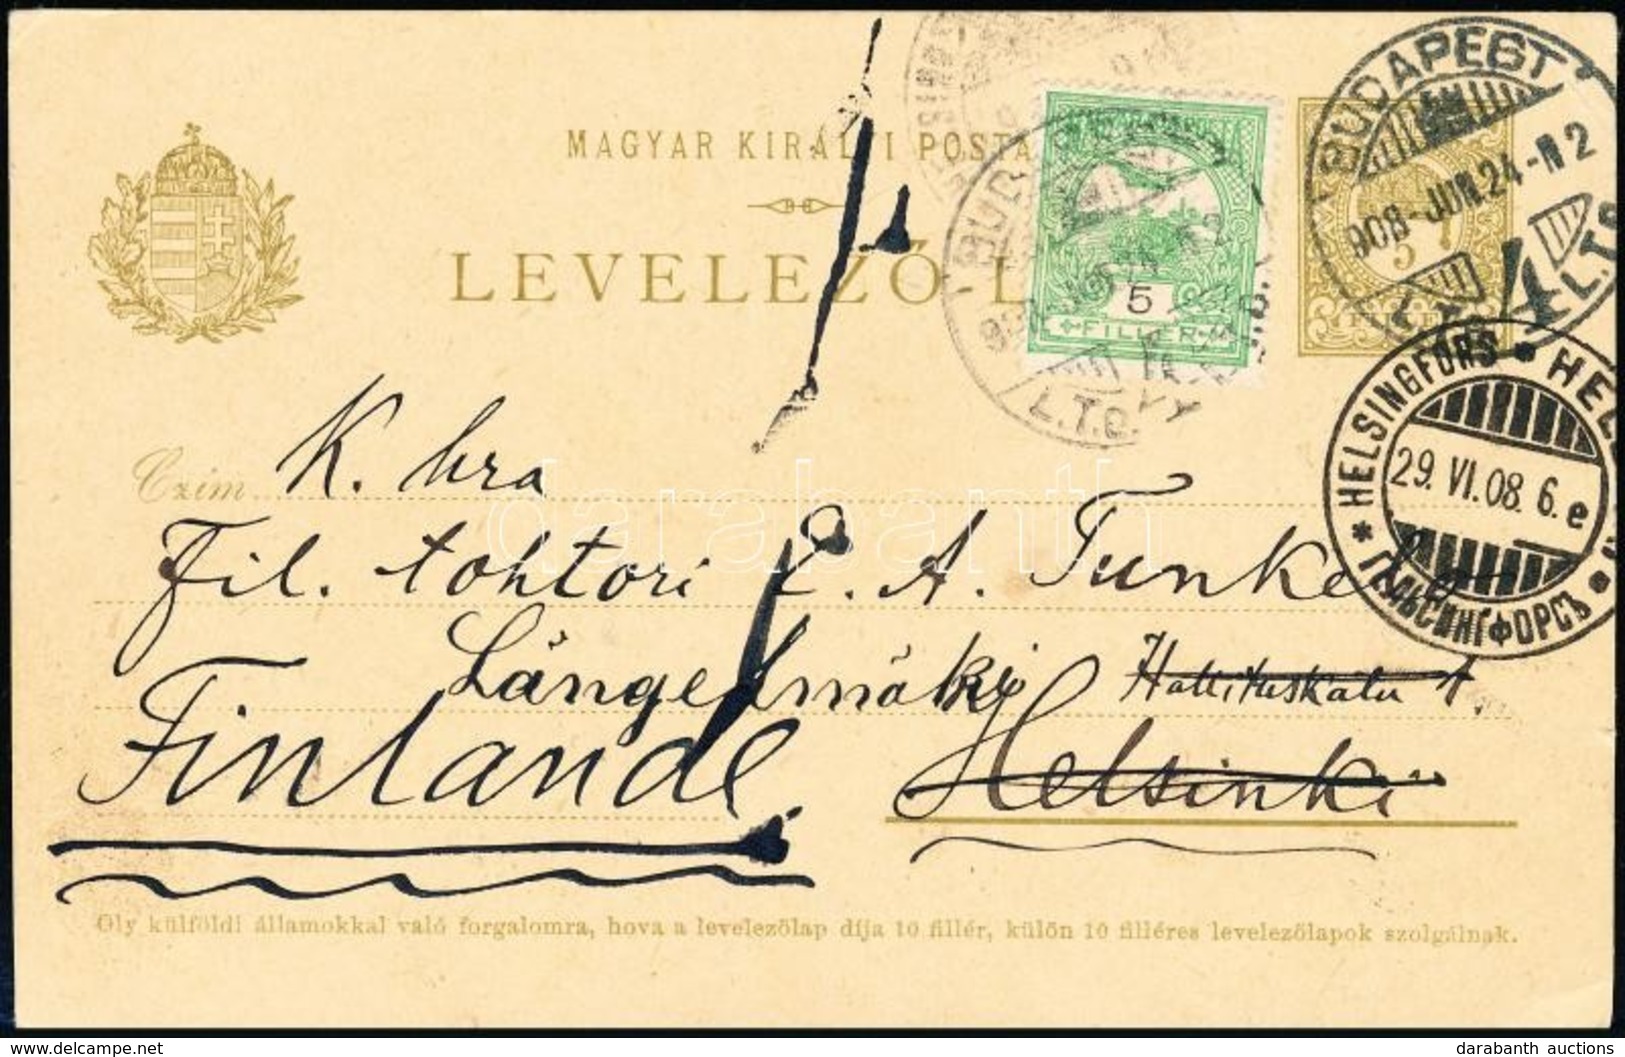 MAGYAR KIRÁLYI POSTA
LEVELEZŐ-L
5
FILLÉR
BUDAPEST
908-JUN.24-N2
4
L.T.O.
BUDAPEST
L.T.O.
HELSINGFORS
29. VI. 08. 6. e
ГЕЛЬСИНГФОРСЪ
Czim K. hra
Fil. tohtori E. A. Tunkelo
Längelmäki Hallituskatu 1.
Finlande. Helsinki
Oly külföldi államokkal való forgalomra, hova a levelezőlap díja 10 fillér, külön 10 filléres levelezőlapok szolgálnak.
darabanth
delcampe.net
darabanth auctions